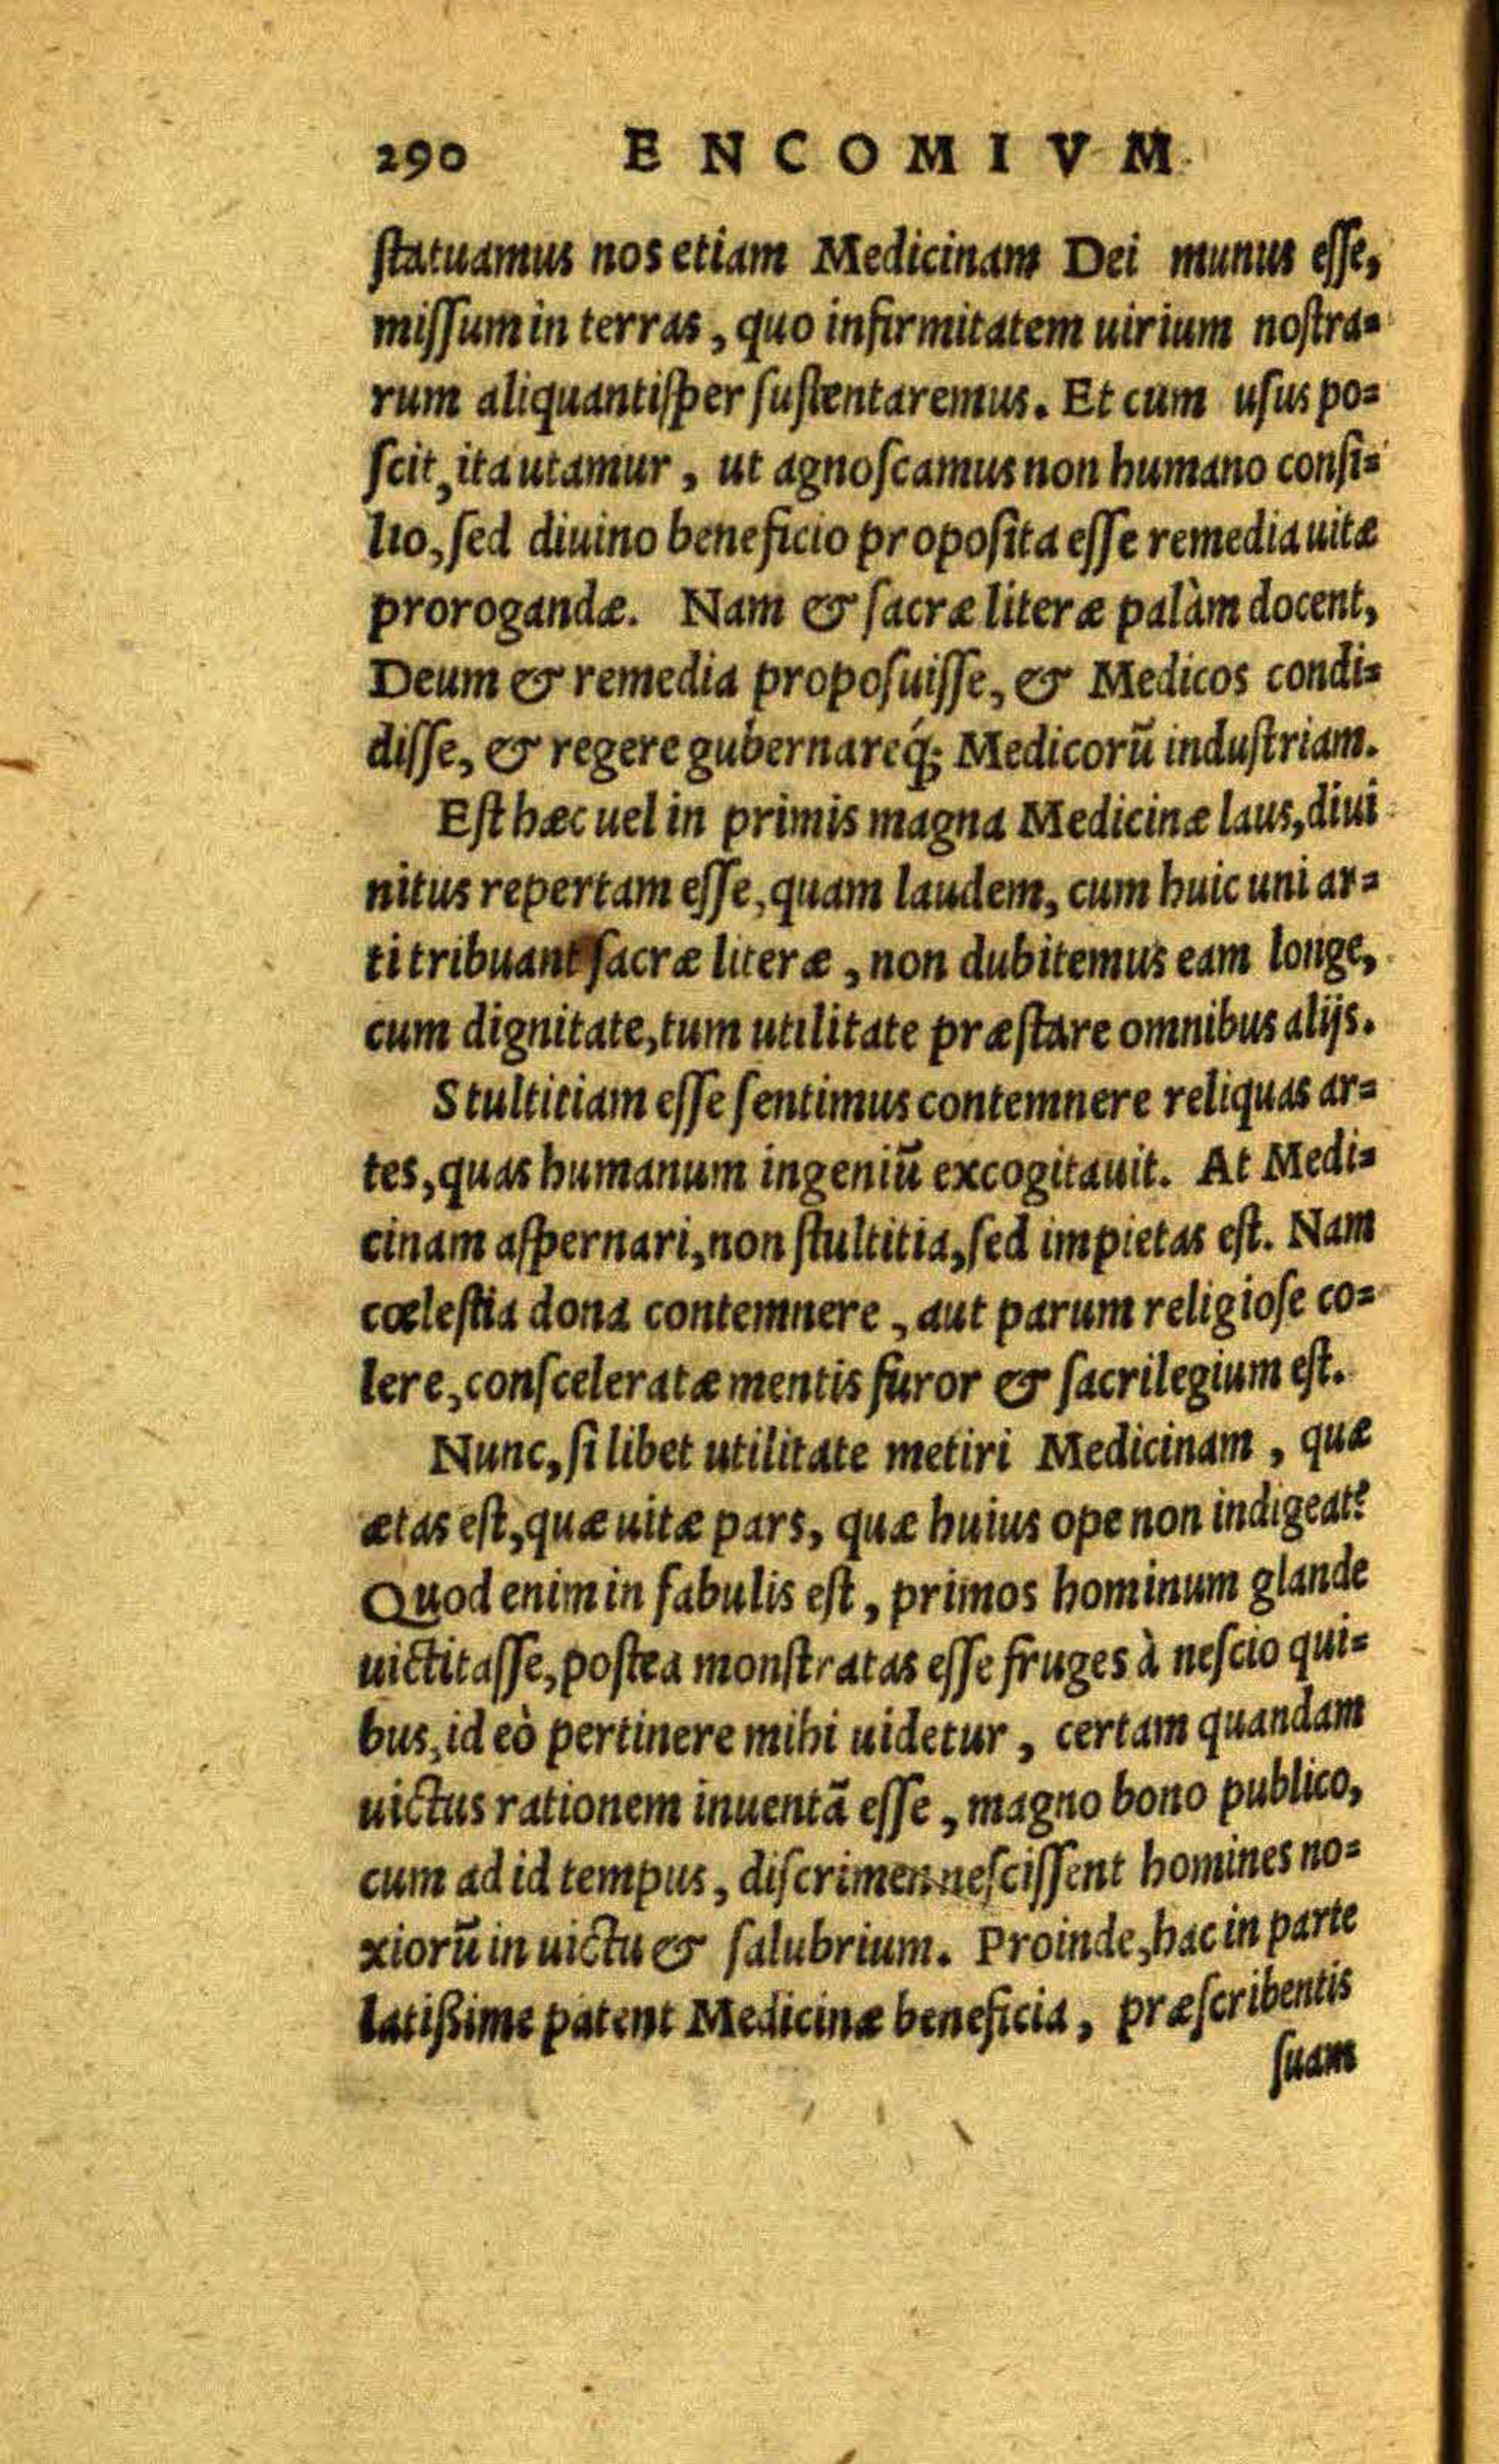 290 ENCOMIVM
ſtatuamus nos etiam Medicinam Dei munus eſſe,
miſſum in terras, quo infirmitatem uirium noſtra=
rum aliquantiſper ſuſtentaremus. Et cum uſus po=
ſcit, ita utamur, ut agnoſcamus non humano conſi=
lio, ſed diuino beneficio propoſita eſſe remedia uitæ
prorogandæ. Nam & ſacræ literæ palàm docent,
Deum & remedia propoſuiſſe, & Medicos condi=
diſſe, & regere gubernareq́; Medicorũ induſtriam.
Eſt hæc uel in primis magna Medicinæ laus, diui
nitus repertam eſſe, quam laudem, cum huic uni ar=
ti tribuant ſacræ literæ, non dubitemus eam longe,
cum dignitate, tum utilitate præſtare omnibus alijs.
Stultitiam eſſe ſentimus contemnere reliquas ar=
tes, quas humanum ingeniũ excogitauit. At Medi=
cinam aſpernari, non ſtultitia, ſed impietas eſt. Nam
cœleſtia dona contemnere, aut parum religioſe co=
lere, conſceleratæ mentis furor & ſacrilegium eſt.
Nunc, ſi libet utilitate metiri Medicinam, quæ
ætas eſt, quæ uitæ pars, quæ huius ope non indigeat?
Quod enim in fabulis eſt, primos hominum glande
uictitaſſe, poſtea monſtratas eſſe fruges à neſcio qui=
bus, id eò pertinere mihi uidetur, certam quandam
uictus rationem inuentã eſſe, magno bono publico,
cum ad id tempus, diſcrimen neſciſſent homines no=
xiorũ in uictu & ſalubrium. Proinde, hac in parte
latißime patent Medicinæ beneficia, præſcribentis
ſuam